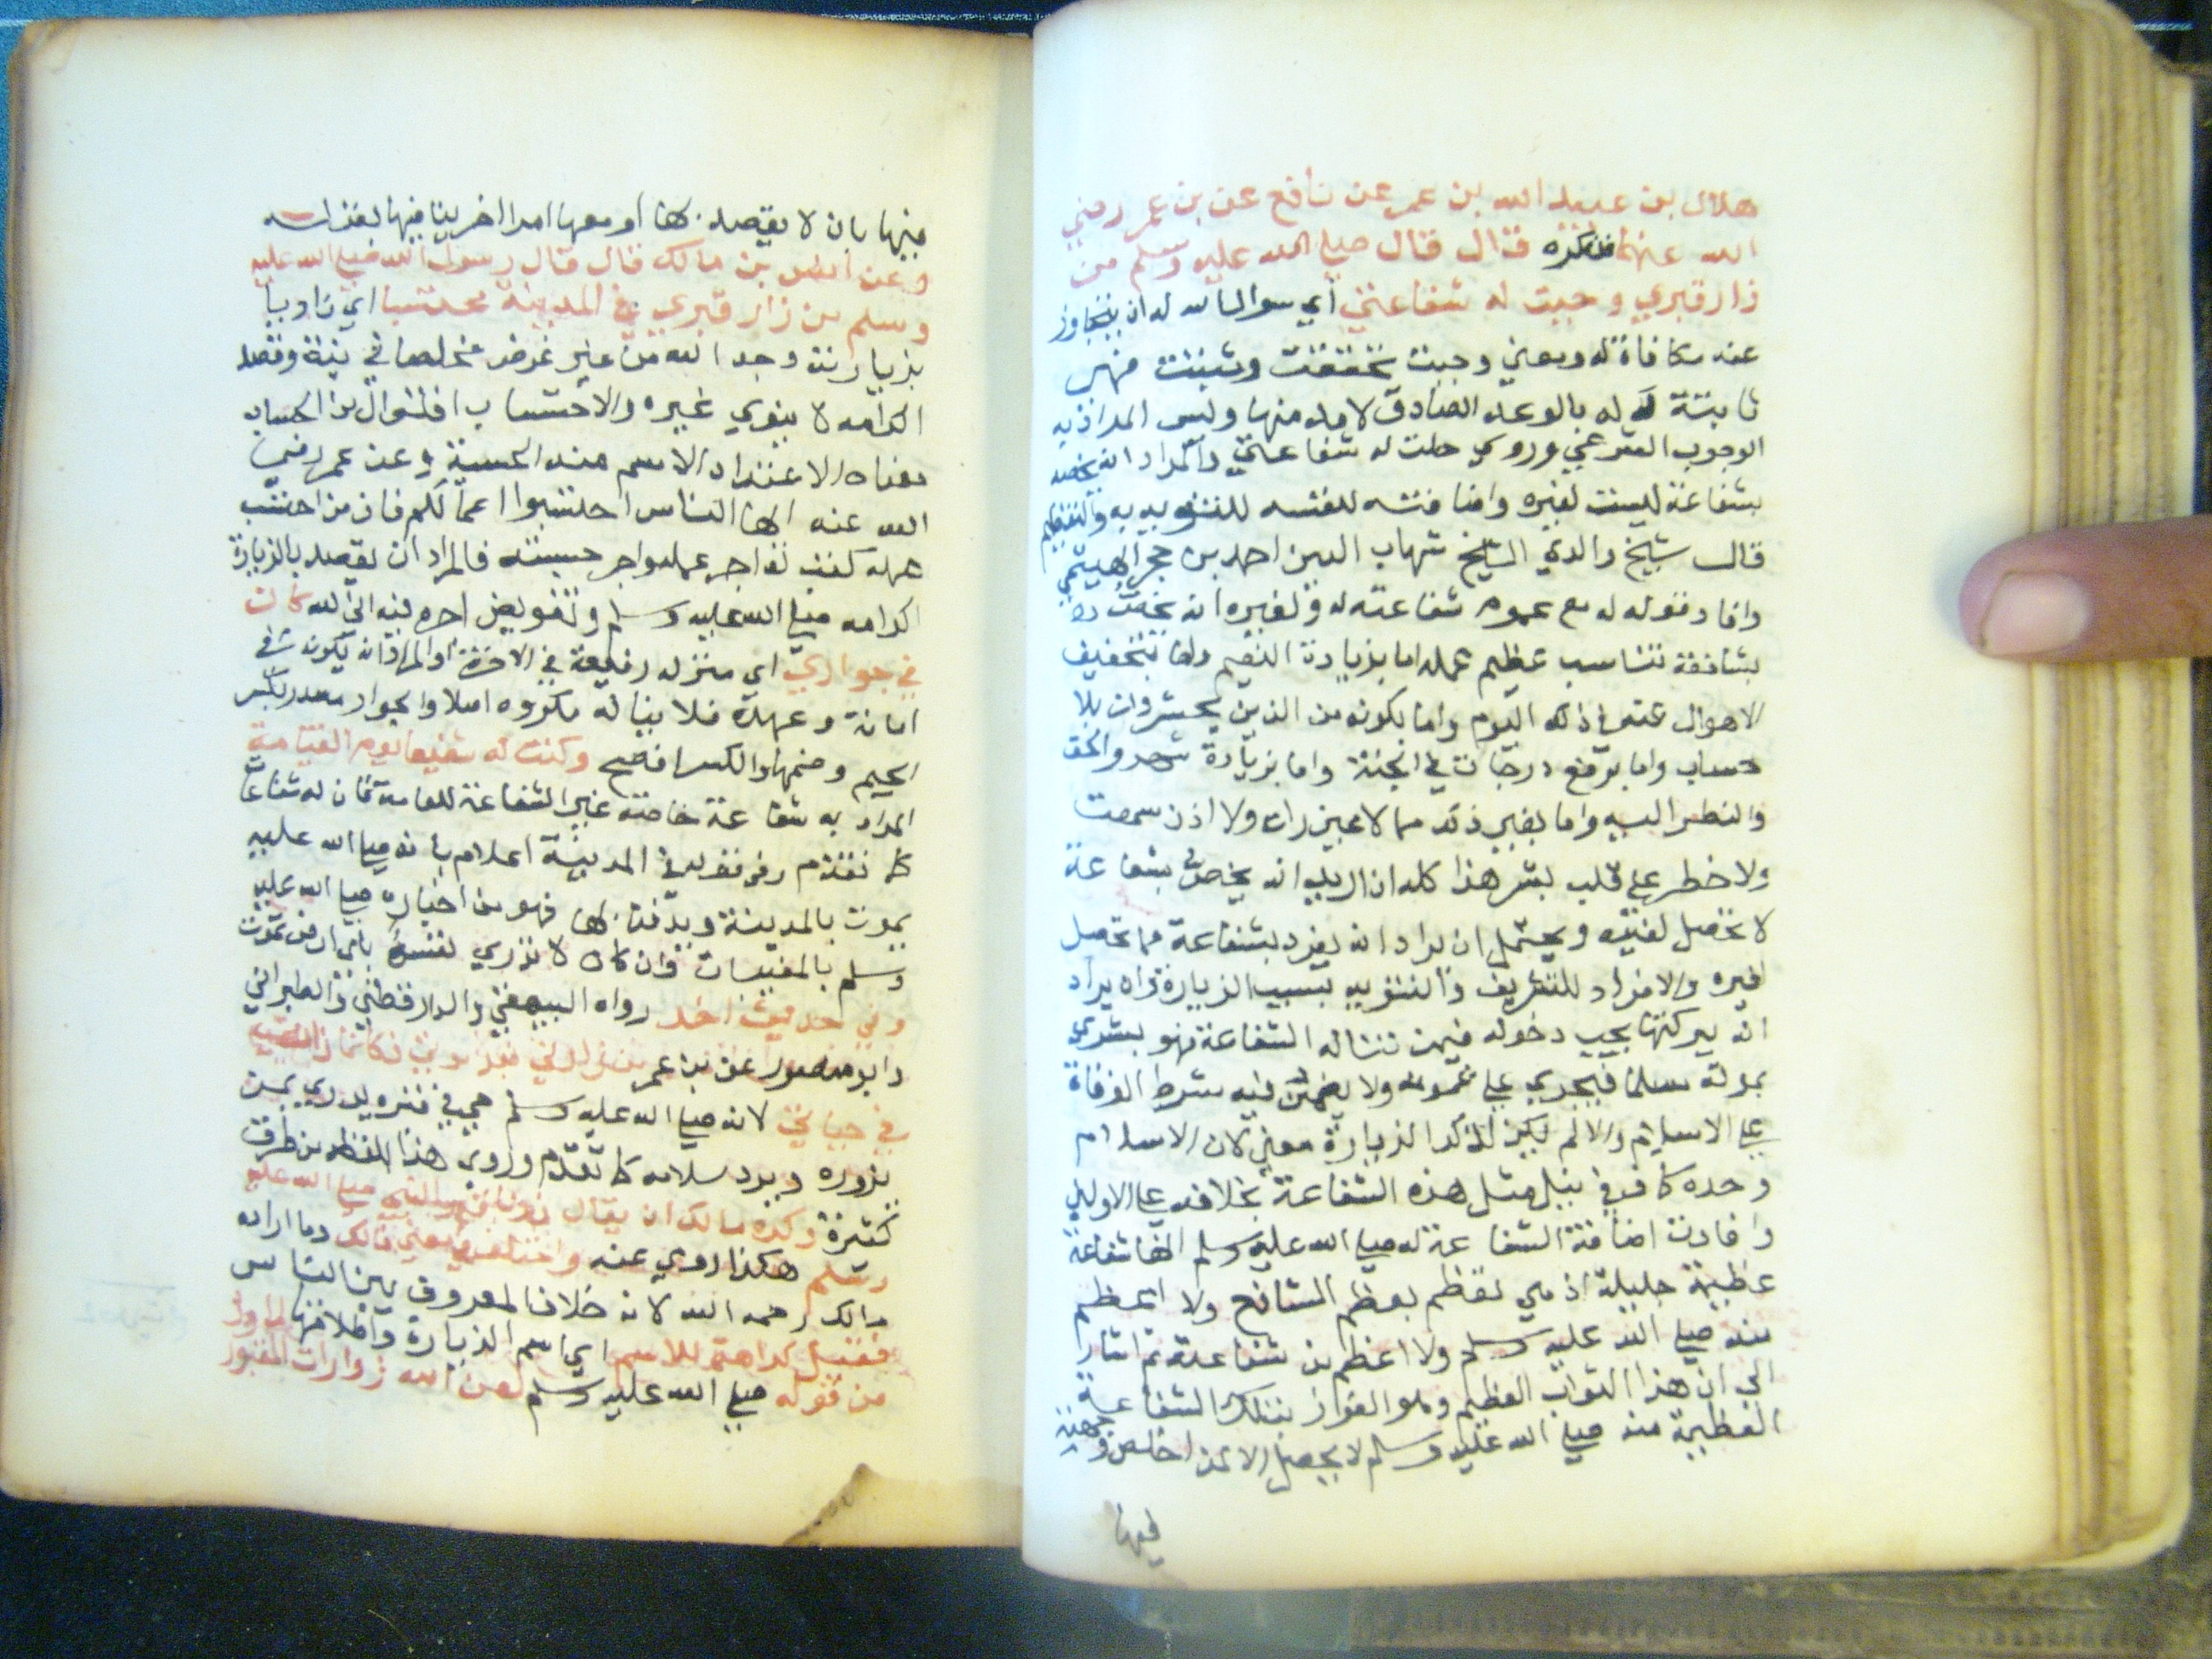 هلال بن عبيد الله بن عمر عن نافع عن بن عمر رضي
الله عنهما فذكره قال قال صلى الله عليه وسلم من
زار قبري وجبت له شفاعتي أي سوال الله له ان يتجاوز
عنه مكافاة له ومعنى وجبت تحققت وثبتت فهي
ثابتة له بالوعد الصادق لا بد منها وليس المراد به
الوجوب الشرعي وروي حلت له شفاعتي والمراد انه يخصه
بشفاعة ليست لغيره واضافته لنفسه للتنويه به والتعظيم
قال شيخ والدي الشيخ شهاب الدين احمد بن حجر الهيتمي
وافاد قوله له مع عموم شفاعته له ولغيره انه يخص
بشفاعة تناسب عظيم عمله اما بزيادة النعيم واما بتخفيف
الاهوال عنه في ذلك اليوم واما بكونه من الذين يحشرون بلا
حساب واما برفع درجات في الجنة واما بزيادة شهود الحق
والنظر اليه واما بغير ذلك مما لا عين رات ولا اذن سمعت
ولا خطر على قلب بشر هذا كله ان اريد انه يخص بشفاعة
لا تحصل لغيره ويحتمل ان يراد انه يفرد بشفاعة مما تحصل
لغيره والافراد للتشريف والتنويه بسبب الزيارة وان يراد
انه ببركتها يجب دخوله فيمن تناله الشفاعة فهو بشرى
بموته مسلما فيجري على عمومه ولا يضمن فيه شرط الوفاة
على الاسلام والا لم يكن لذكر الزيارة معنى لان الاسلام
وحده كاف في نيل مثل هذه الشفاعة بخلافه على الاولين
وافادت اضافة الشفاعة له صلى الله عليه وسلم انها شفاعة
عظيمة جليلة اذ هي تعظم بعظم الشافع ولا اعظم
منه صلى الله عليه وسلم ولا اعظم من شفاعته ثم اشار
الى ان هذا الثواب العظيم وهو الفوز بتلك الشفاعة
العظيمة منه صلى الله عليه وسلم لا يحصل الا لمن اخلص وجهته
فيها
فيها بان لا يقصد بها أو معها امرا اخر ينافيها بقوله
وعن انس بن مالك قال قال رسول الله صلى الله عليه
وسلم من زار قبري في المدينة محتسبا اي ناويا
بزيارته وجه الله من غير غرض مخلصا في نيته وقصد
اكرامه لا ينوي غيره والاحتساب افتعال من الحساب
معناه الاعتداد الاسم منه الحسبة وعن عمر رضي
الله عنه ايها الناس احتسبوا اعمالكم فان من احتسب
عمله كتب له اجر عمله واجر حسبته فالمراد ان يقصد بالزيارة
اكرامه صلى الله عليه وسلم وتفويض اجره فيه الى الله كان
في جواري اي منزله رفيعة في الاخرة او المراد انه يكون في
امانة وعهدة فلا يناله مكروه اصلا والجوار مصدر بكسر
الجيم وضمها والكسر افصح وكنت له شفيعا يوم القيامة
المراد به شفاعة خاصة غير الشفاعة للعامة فان له شفاعات
كما تقدم وفي قوله في المدينة اعلام بانه صلى الله عليه
يموت بالمدينة ويدفن بها فهو من اخباره صلى الله عليه
وسلم بالمغيبات وان كان لا تدري نفس باي ارض تموت
وفي حديث اخر رواه البيهقي والدارقطني والطبراني
وابو منصور عن بن عمر من زارني بعد موتي فكانما زارني
في حياتي لانه صلى الله عليه وسلم حي في قبره يدري بمن
يزوره ويرد سلامه كما تقدم وروي هذا اللفظ من طرق
كثيرة وكره مالك ان يقال زرنا قبر النبي صلى الله عليه
وسلم هكذا روي عنه واختلف في معنى ذلك وما اراد
مالك رحمه الله لانه خلاف المعروف بين الناس
فقيل كراهته للاسم اي اسم الزيارة واطلاقها لما ورد
من قوله صلى الله عليه وسلم لعن الله زوارات القبور